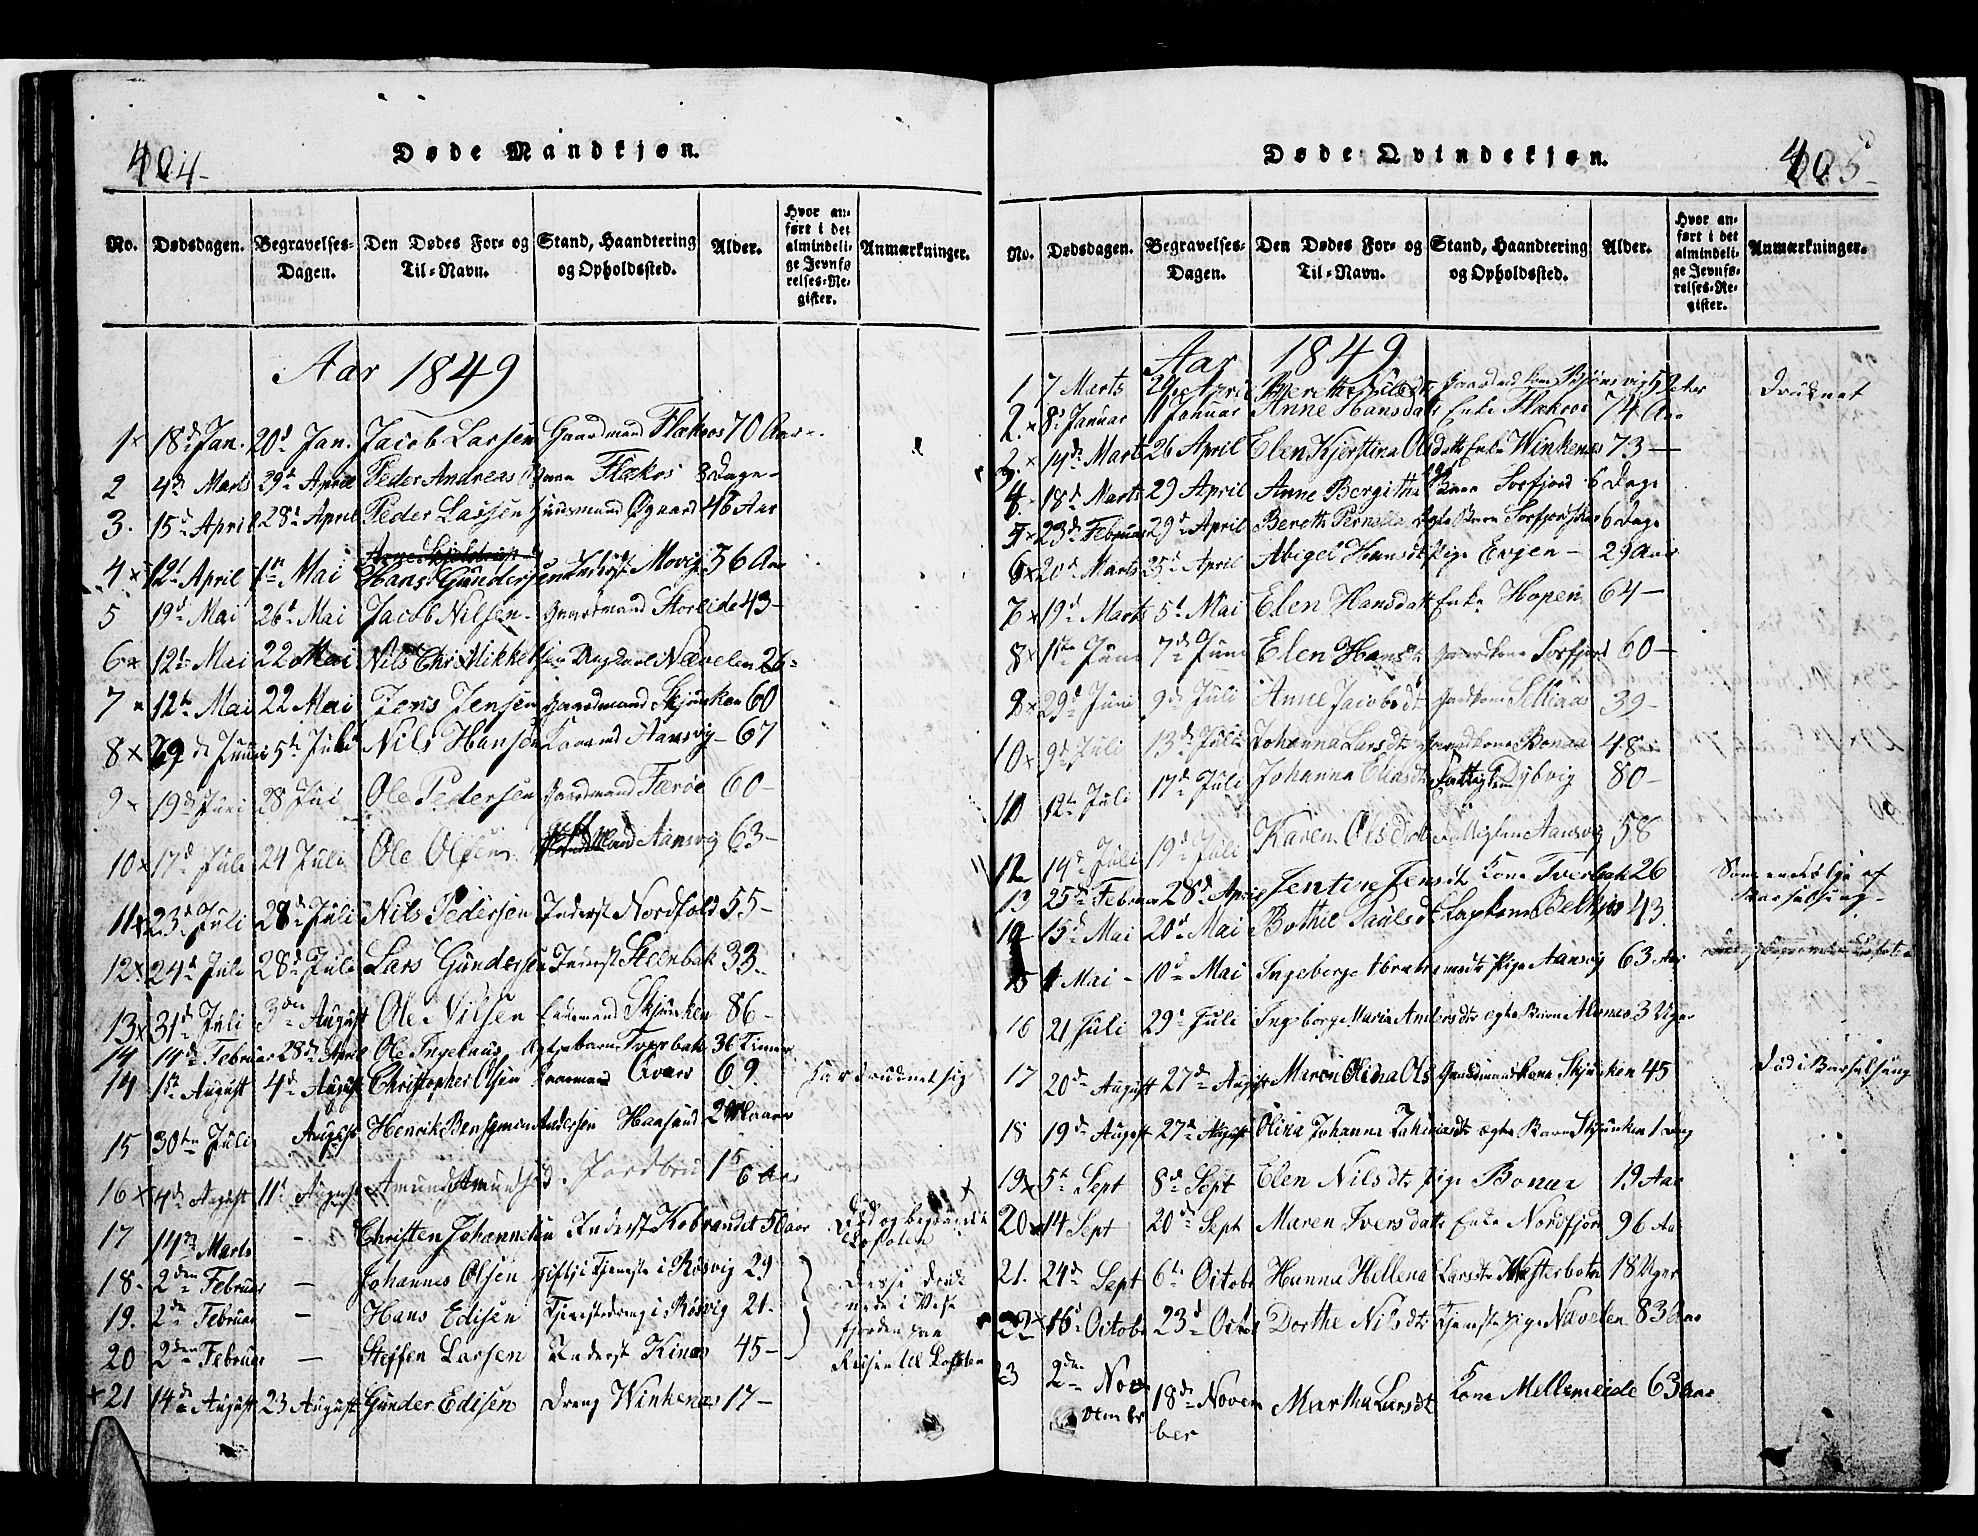 404
Døde Mandkjøn.
No. Dødsdagen. Begravelses-Dagen. Den Dødes For- og Til-Navn. Stand, Haandtering og Opholdssted. Alder. Hvor anført i det almindelige Jevnførelses-Register. Anmærkninger.
Aar 1849
1 × 18d Jan. 20d Jan. Jacob Larsen Gaardmand Flakos 70 Aar
2 4d Marts 29d April Peder Andreas Flakos 8 Dage
3. 15d April 28d April Peder Lassen Huusmand Øgaard 46 Aar
4 × 12t April 1ste Mai Hans Gundersen Inderst Movig 56 Aar
5 19d Mai 26d Mai Jacob Nilsen Gaardmand Storeide 43
6 × 12te Mai 22 Mai Nils Chr Mikkelsen Nævelen 26
7 × 12te Mai 22 Mai Jens Jensen Gaardmand Skjunken 60
8 × 29de Juni 5te Juli Nils Hansen Aansvig 67
9 × 19d Juni 28 Juni Ole Pedersen Gaardmand Færøe 60
10 × 17d Juli 24 Juli Ole Olsen Mand Aansvig 63
11 × 23d Juli 28d Juli Nils Pedersen Inderst Nordfold 55
12 × 24d Juli 28d Juli Lars Gundersen Inderst Steenbak 33
13 × 31d Juli 3den August Ole Nilsen Skjunken 86
14 14d Februar 28d April Ole Ingebr Tverbak 36 Timer
14 1ste August 4d August Christopher Olsen 69. har druknet sig
15 30te Juli August Henrik Benjamin Andersen Hansund 2 Aar
16 × 4d August 11t August Amund Amundsen Jordbru 6 Aar
17 14d Marts – Christen Johannesen Inderst Kobvandet 50 Aar Død og begravet i Lofoten
18 2den Februar – Johannes Olsen Gift i Tjeneste i Røsvig 29
19. 2den Februar – Hans Edisen Tjenestedreng i Røsvig 21
20 2den Februar – Steffen Larsen Inderst Kines 45
Disse druknede i Vestfjorden paa Reisen til Lofoten
× 21 14d August 23 August Gunder Edisen Dreng Winkenes 17
405
Døde Qvindekjøn.
No. Dødsdagen. Begravelses-Dagen. Den Dødes For- og Til-Navn. Stand, Haandtering og Opholdssted. Alder. Hvor anført i det almindelige Jevnførelses-Register. Anmærkninger.
Aar 1849
1 7 Marts April Berethe 52 Aar Druknet
2. × 8d Januar 11 Januar Anne Hansdatt Enke Flakos 74 Aar
3. × 14d Marts 26 April Elen Kjerstina Olsdatt Enke Winkenes 73
4 18d Marts 29 April Anne Bergithe Barn Sorfjord 6 Dage
5 × 23d Februar 29d April Bereth Pernella Ægte Barn Sorfjord 6 Dage
6 × 20d Marts 25d April Abigel Hansdt Pige Evjen 29 Aar
7 × 19d Marts 5t Mai Elen Hansdatt Enke Hopen 64
8 × 1ste Juni 7d Juni Elen Hansdt Gaardkone Sorfjord 60
8 × 29d Juni 9d Juli Anne Jacobsdt Gaardkone Selliaas 39
10 × 9d Juli 13d Juli Johanna Larsdt Gaardkone Bonaa 48
10 12te Juli 17d Juli Johanna Eliasdt Fattiglem Dybvig 80
12 14d Juli 19d Juli Karen Olsdtr Fattiglem Aansvig 58
13 25d Februar 28d April Jentine Jensdt Kone Tverbak 26 Som en Følge af Barselseng
14 15d Mai 20d Mai Bothil Paulsdt Lapkone 43
15 Mai 10d Mai Ingeborge Abrahamsdt Pige Aansvig 63 Aar
16 21 Juli 29d Juli Ingeborg Maria Andersdtr ægte Barn Alsnes 3 Uger
17 20d August 27d August Maren Olina Ols Gaardmandkone Skjunken 45 Død i Barselseng
18 19d August 27d August Olina Johanna Johansdt ægte Barn Skjunken 1 Dag
19 × 5t Sept 8d Sept Elen Nilsdt Pige Bonaa 19 Aar
20 × 14 Sept 20d Sept Maren Iversdatt Enke Nordfjord 96 Aar
21. 24d Sept 6te Octobr Hanna Hellena Larsdtr Westerbotn 18 Uger
22 × 16d Octobr 23d Octob Dorthe Nilsdt Tjenstepige Nævelen 83 Aar
23 2den November 18d November Martha Larsdt Kone Mellemeide 63 Aar